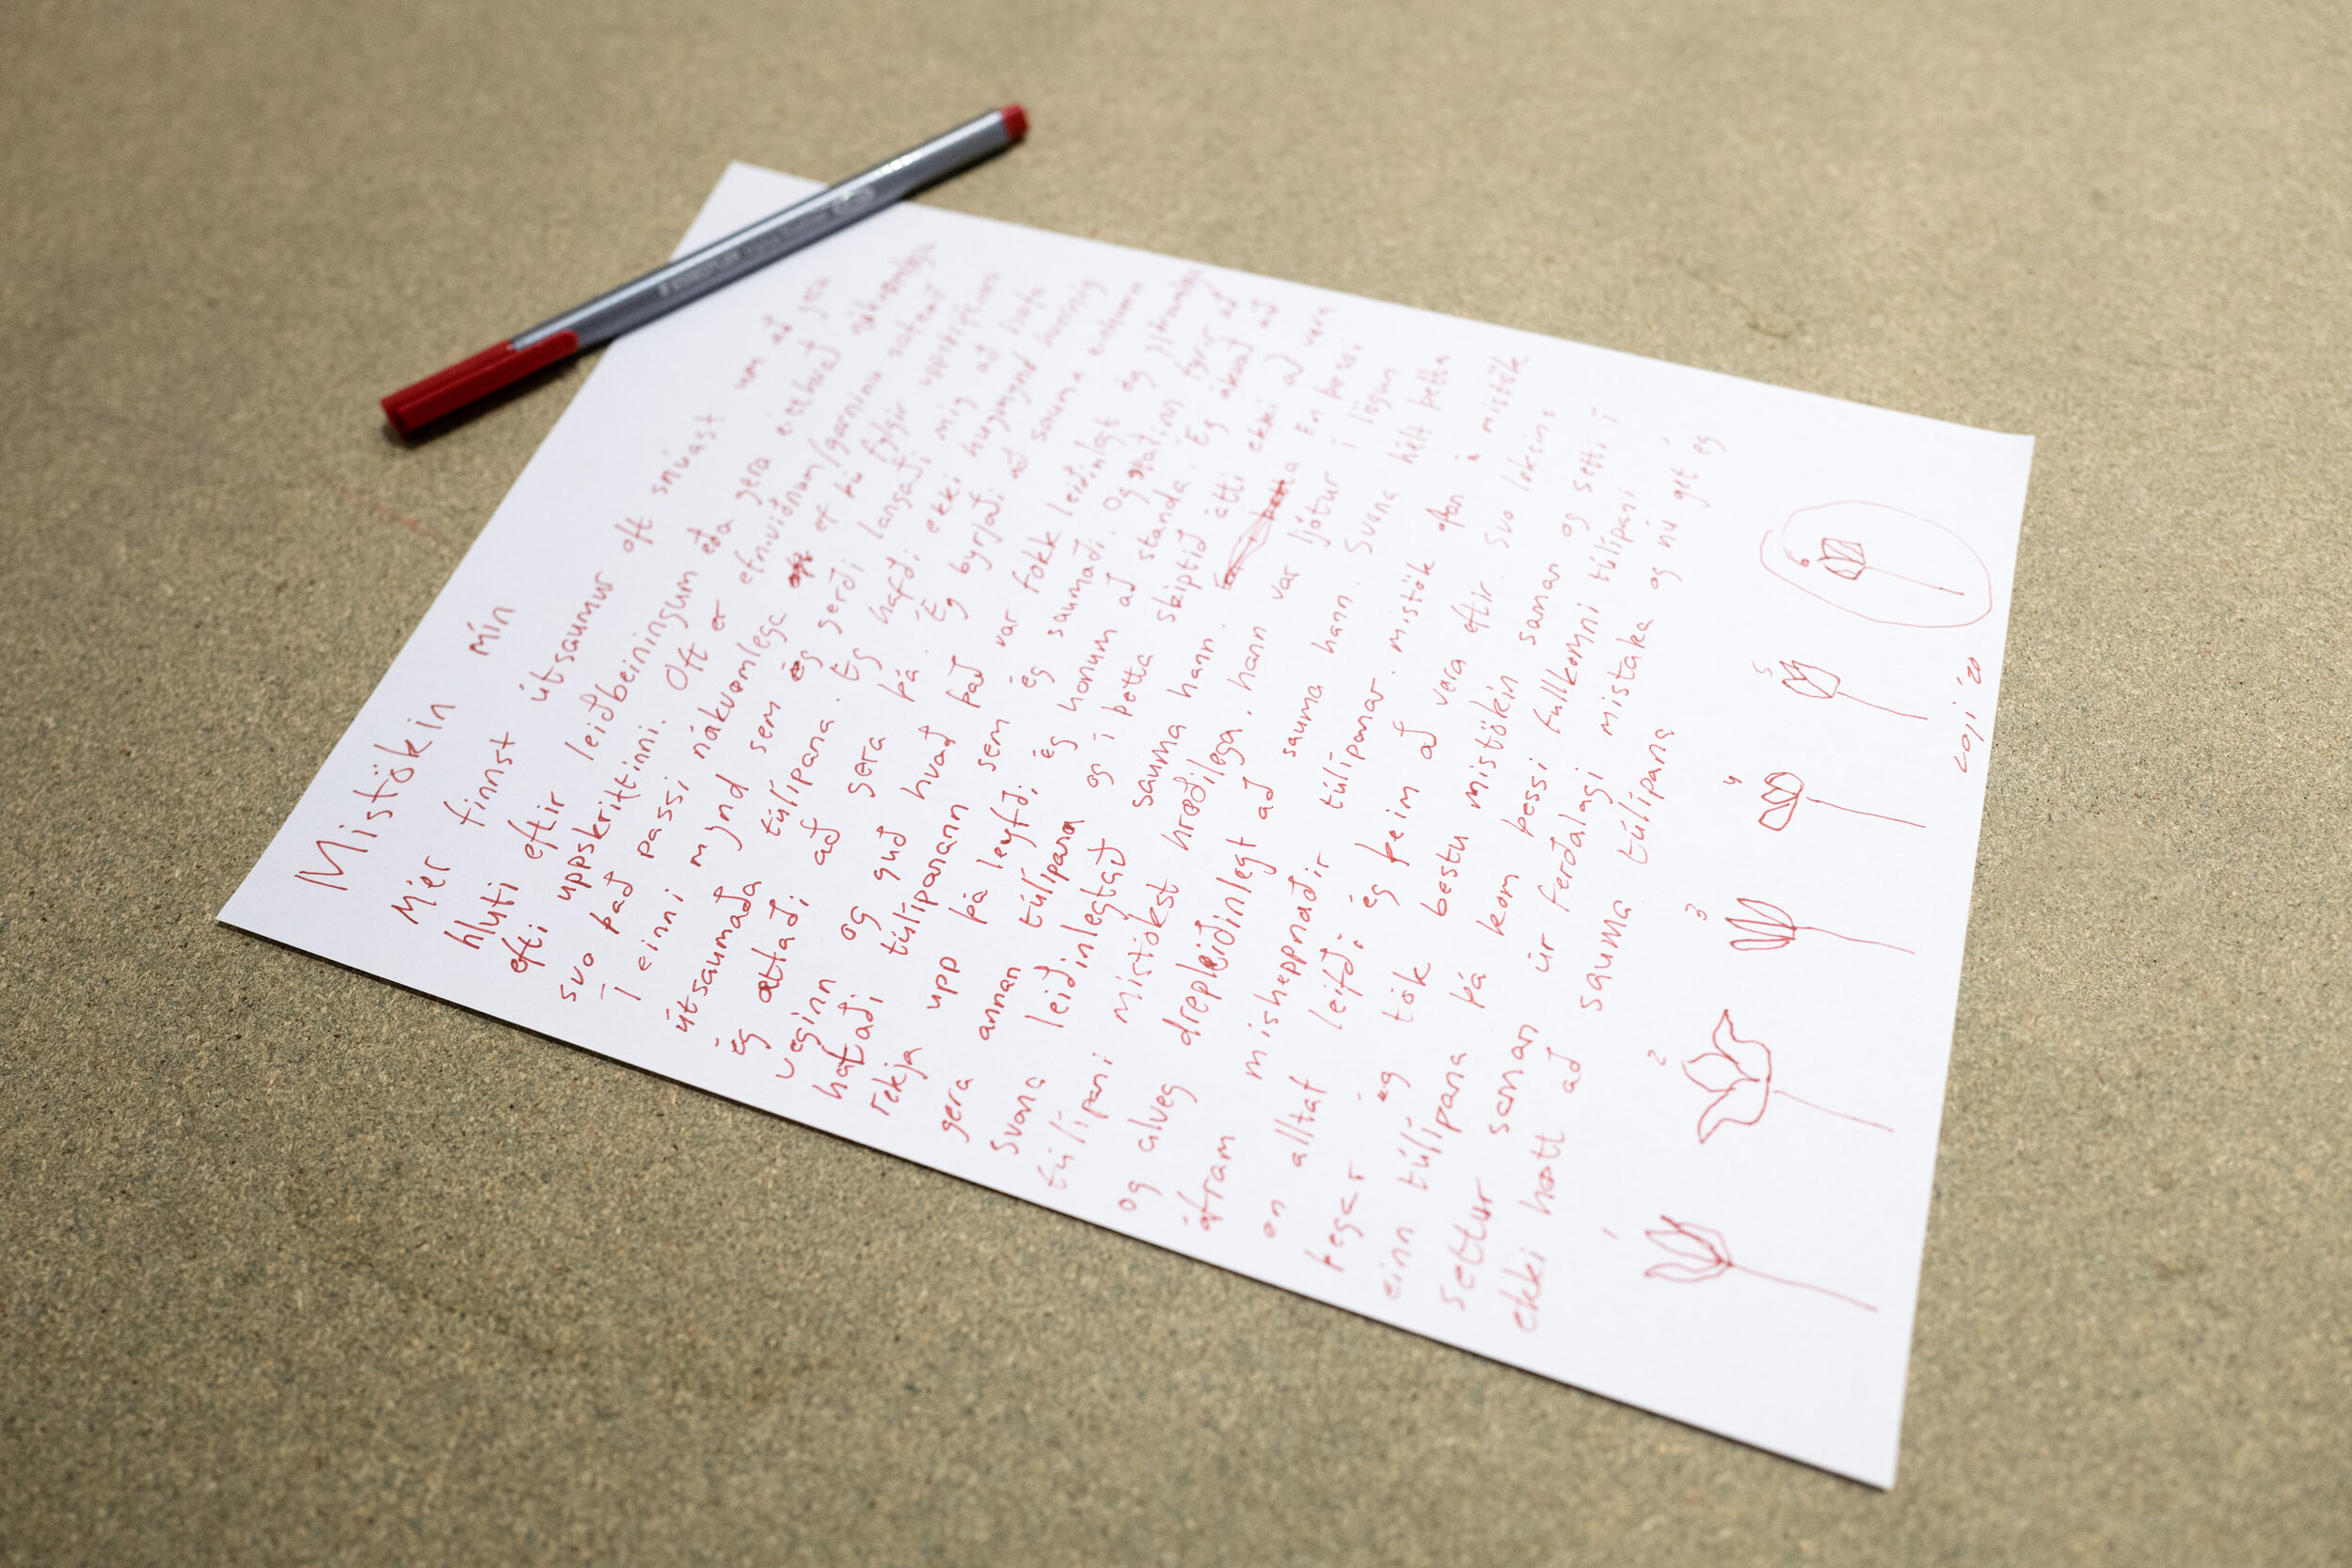 Mistökin mín
Mér finnst útsaumur oft snúast um að gera
hluti eftir leiðbeiningum eða gera eitthvað nákvæmlega
efti uppskriftinni. Oft er efniviðnum/garninu safnað
svo það passi nákvæmlega ef þú fylgir uppskriftinni
Í einni mynd sem ég gerði langaði mig að hafa
útsaumaða túlípana. Ég hafði ekki hugmynd hvernig
ég ætlaði að gera þá. Ég byrjaði að sauma einhvern
veginn og guð hvað það var fokk leiðinlegt og
hataði túlípanann sem ég saumaði. Og staðinn fyrir að
rekja upp þá leyfði ég honum að standa. Ég ákvað að
gera annan túlípana og í þetta skiptið átti ekki að vera
svona leiðinlegt að sauma hann. En þessi
túlípani mistókst hræðilega. hann var ljótur í lögun
og alveg drepleiðinlegt að sauma hann. Svona hélt þetta
áfram misheppnaðir túlípanar. mistök ofan á mistök
en alltaf leifði ég þeim að vera eftir. Svo loksins
þegar ég tók bestu mistökin saman og setti í
einn túlípana þá kom þessi fullkomni túlípani
settur saman úr ferðalagi mistaka og nú get ég
ekki hætt að sauma túlípana
1 2 3 4 5 6
Loji '20